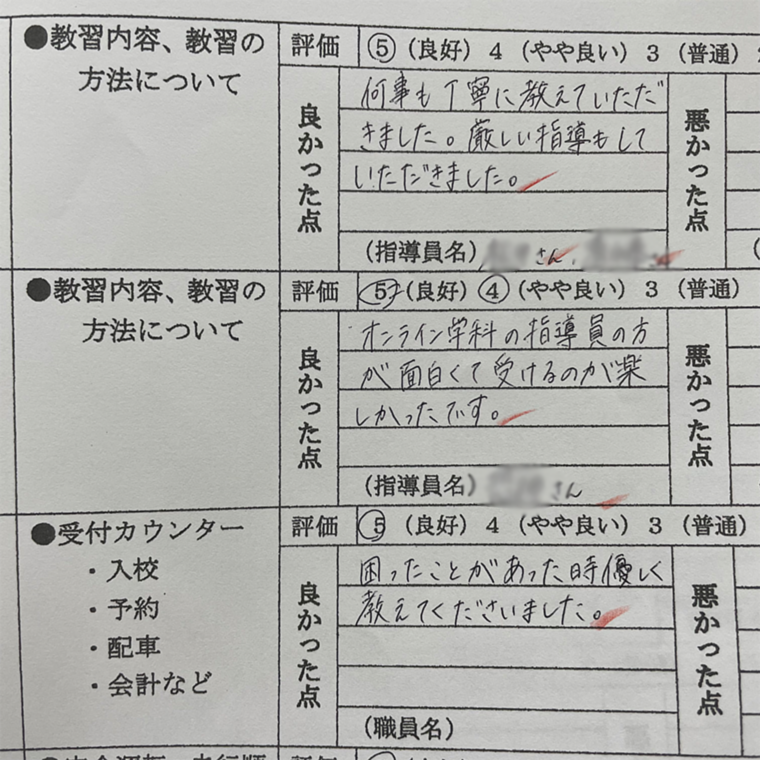 ●教習内容、教習の
方法について
評価 ⑤（良好）４（やや良い）３（普通）
良かった点
何事も丁寧に教えていただ
きました。厳しい指導もして
いただきました。
（指導員名） さん、 さん
悪かった点
●教習内容、教習の
方法について
評価 ⑤（良好）④（やや良い）３（普通）
良かった点
オンライン学科の指導員の方
が面白くて受けるのが楽
しかったです。
（指導員名） さん
悪かった点
●受付カウンター
・入校
・予約
・配車
・会計など
評価 ⑤（良好）４（やや良い）３（普通）
良かった点
困ったことがあった時優しく
教えてくださいました。
（職員名）
悪かった点